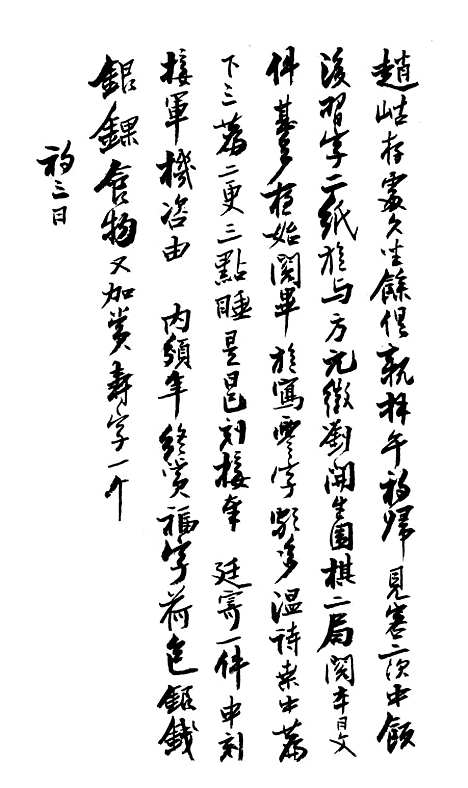 趙岵存處久坐餘俱親拜午初歸見客二次中飯
後習字二紙旋與方元徵劉開生圍棋二局閱本日文
件甚多核始閱畢旋寫零字頗多溫詩末中蕭
下三蕭二更三點睡是日巳刻接奉 廷寄一件申刻
接軍機咨由 內頒年終賞福字荷包銀錢
銀錁食物又加賞壽字一个
初三日